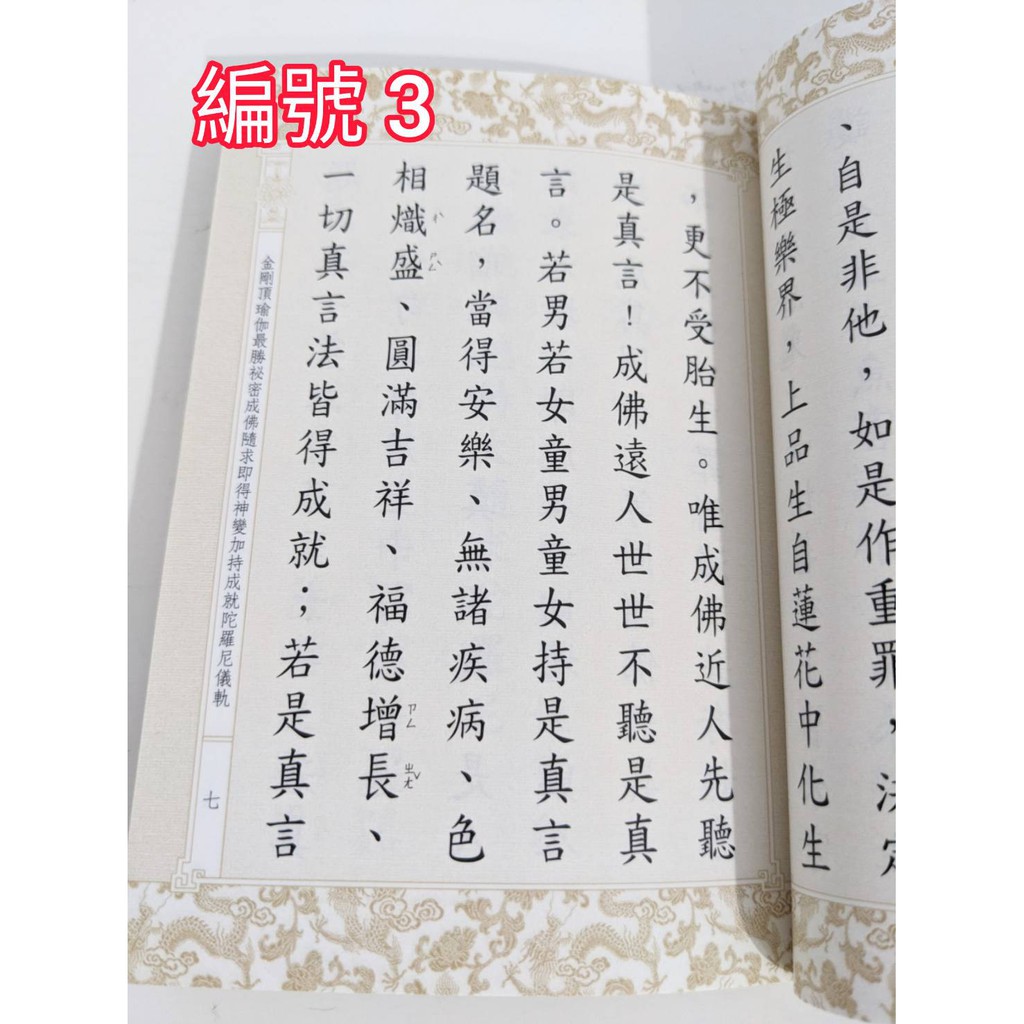 編號 3
、自是非他，如是作重罪，決定
生極樂界，上品生自蓮花中化生
，更不受胎生。唯成佛近人先聽
是真言！成佛遠人世世不聽是真
言。若男若女童男童女持是真言
題名，當得安樂、無諸疾病、色
相熾盛、圓滿吉祥、福德增長、
ㄔˋ ㄕㄥˋ ㄗㄥ ㄓㄤˇ
一切真言法皆得成就；若是真言
金剛頂瑜伽最勝祕密成佛隨求即得神變加持成就陀羅尼儀軌
七